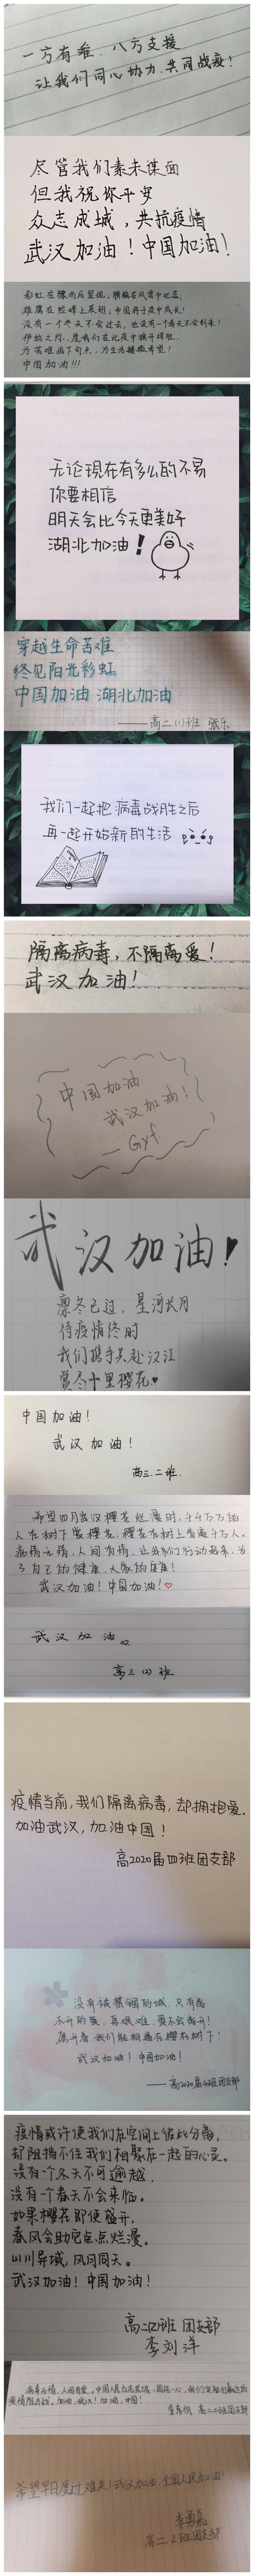 一方有难，八方支援
让我们同心协力，共同战疫！
尽管我们素未谋面
但我祝你平安
众志成城，共抗疫情
武汉加油！中国加油！
彩虹在骤雨后显现；腊梅在风雪中吐蕊，
雄鹰在悬崖上展翅；中国将于疫中成长！
没有一个冬天不会过去，也没有一个春天不会到来！
为苦难画下句点，为生活播撒希望！
中国加油!!!
无论现在有多么的不易
你要相信
明天会比今天更美好
湖北加油！
穿越生命苦难
终见阳光彩虹
中国加油 湖北加油
——高二(1)班 张乐
我们一起把病毒战胜之后
再一起开始新的生活
隔离病毒，不隔离爱！
武汉加油！
中国加油
武汉加油！
—Gyf.
武汉加油！
凛冬已过，星河长月
待疫情终时
我们携手共赴汉江
赏尽十里樱花
中国加油！
武汉加油！
高三.二班.
希望四月武汉樱花烂漫时，千千万万的
人在树下赏樱花，樱花在树上看着千万人。
病情无情，人间有情，让我们行动起来，为
了自己的健康、大家的健康！
武汉加油！中国加油！
武汉加油。
高三(2)班
疫情当前，我们隔离病毒，却拥抱爱.
加油武汉，加油中国！
高2020届四班团支部
没有被禁锢的城，只有离
不开的爱，再艰难，爱不会离开！
武汉加油！中国加油！
——高2020届4班团支部
疫情或许使我们在空间上彼此分离，
却阻挡不住我们相聚在一起的心灵。
没有一个冬天不可逾越，
没有一个春天不会来临。
如果樱花即便盛开，
春风会助它点点烂漫。
山川异域，风月同天。
武汉加油！中国加油！
高二(2)班 团支部
李刘洋
病毒无情，人间有爱。中国人民万众一心，我们定能打赢这场
疫情阻击战。加油，武汉！加油，中国！
高二二班团支部
希望早日度过难关！武汉加油，全国人民加油！
李勇嘉
高二.2班团支部